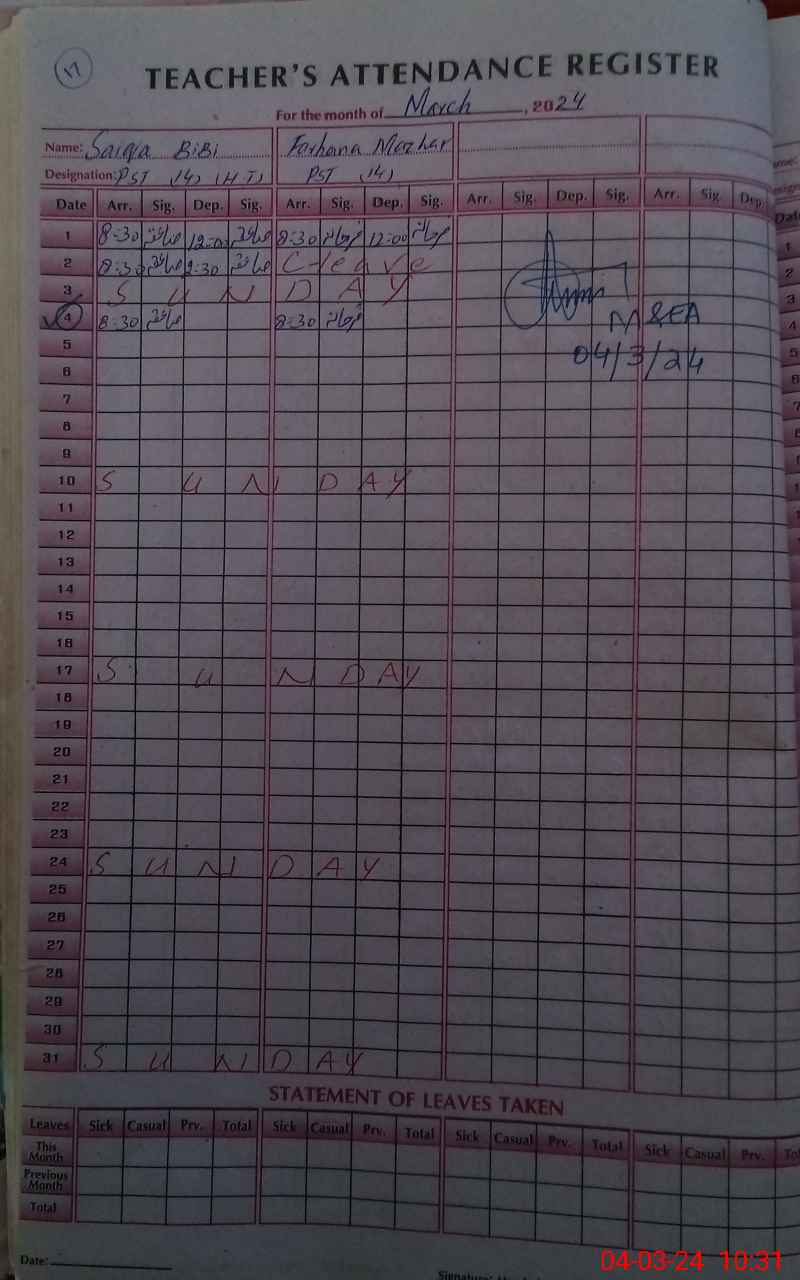 17
TEACHER'S ATTENDANCE REGISTER
For the month of March, 2024
Name: Saiqa BiBi Farhana Mazhar
Designation: PST (14) (H.T) PST (14)
Date Arr. Sig. Dep. Sig. Arr. Sig. Dep. Sig. Arr. Sig. Dep. Sig. Arr. Sig. Dep.
1 8:30 صائقہ 12:00 صائقہ 8:30 فرحانہ 12:00 فرحانہ
2 8:30 صائقہ 1:30 صائقہ C-leave
3 SUNDAY
4 8:30 صائقہ 8:30 فرحانہ M&EA
5 04/3/24
6
7
8
9
10 SUNDAY
11
12
13
14
15
16
17 SUNDAY
18
19
20
21
22
23
24 SUNDAY
25
26
27
28
29
30
31 SUNDAY
STATEMENT OF LEAVES TAKEN
Leaves Sick Casual Prv. Total Sick Casual Prv. Total Sick Casual Prv. Total Sick Casual Prv.
This Month
Previous Month
Total
Date:
04-03-24 10:31